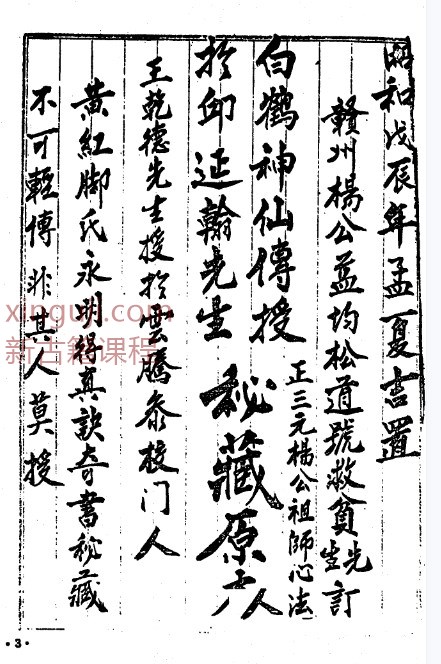 昭和戊辰年孟夏吉置
贛州楊公益均松道號救貧先生訂
白鶴神仙傳授 正三元楊公祖師心法
於邱延翰先生 秘藏原
王乾德先生授於雲騰叅校门人
黄紅脚氏永明得真訣奇書秘藏
不可輕傳 非其人莫授
xinguji.com
新古籍课程
·3·